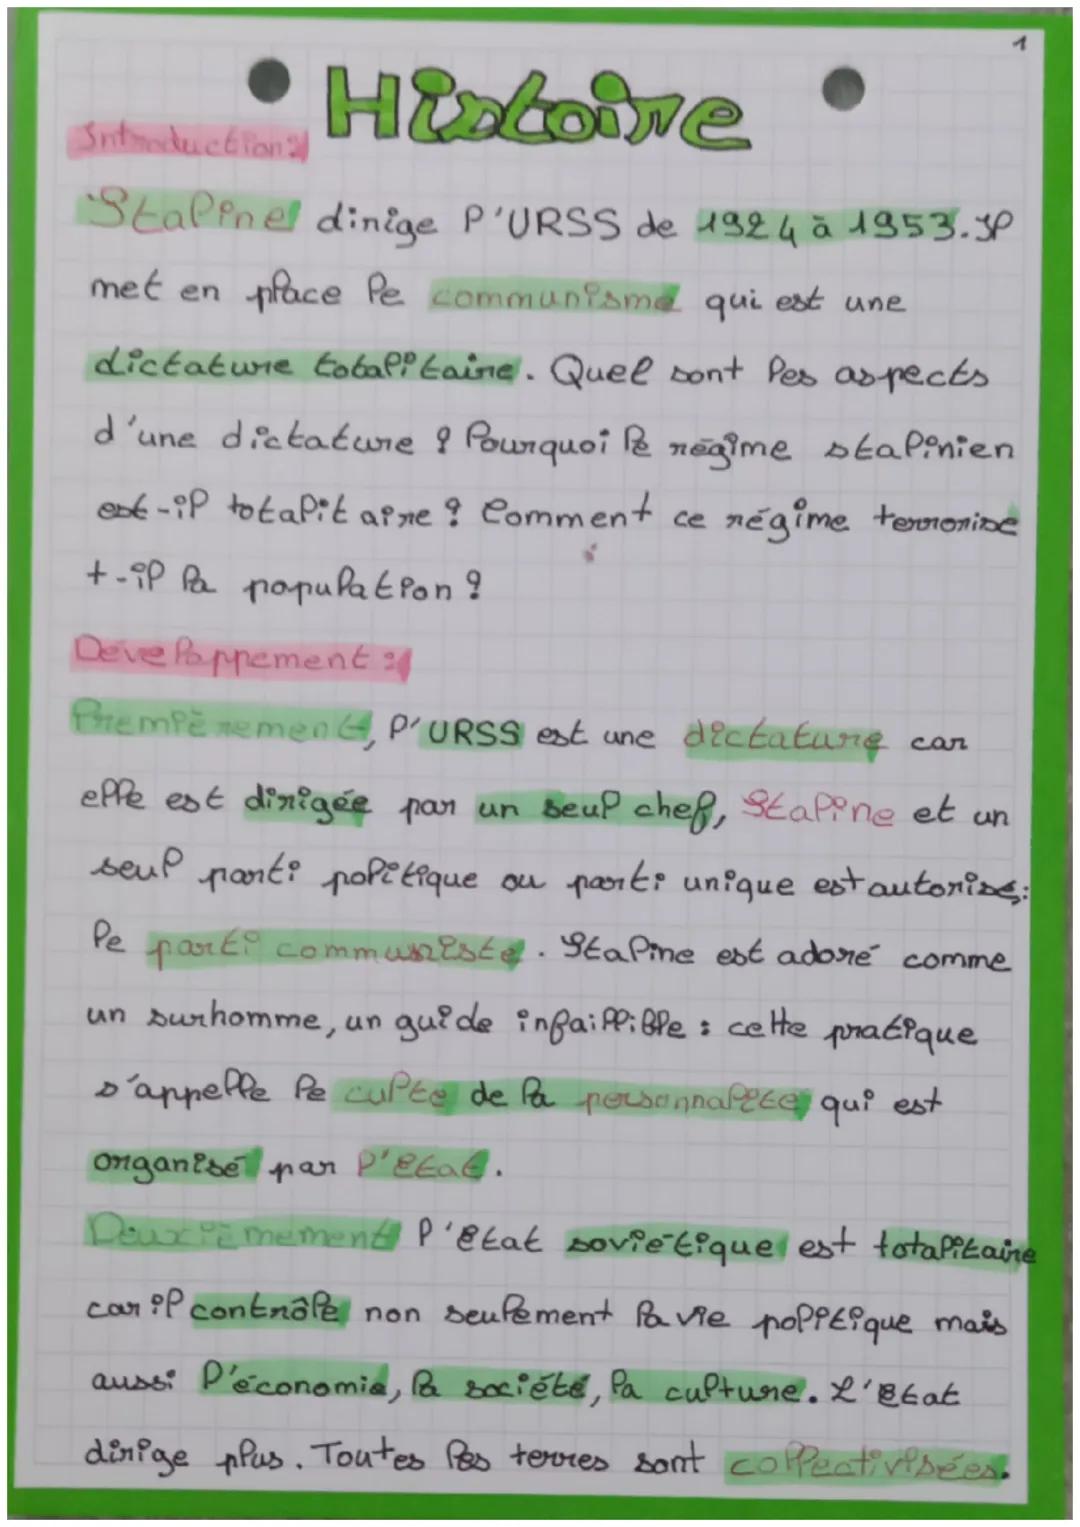 1
Histoire
Introduction:
Staline dirige l'URSS de 1924 à 1953. Il
met en place le communisme qui est une
dictature totalitaire. Quel sont les aspects
d'une dictature ? Pourquoi le régime stalinien
est-il totalitaire ? Comment ce régime terrorise
t-il la population ?
Developpement :
Premièrement, l'URSS est une dictature car
elle est dirigée par un seul chef, Staline et un
seul parti politique ou parti unique est autorisé:
le parti communiste. Staline est adoré comme
un surhomme, un guide infaillible : cette pratique
s'appelle le culte de la personnalité qui est
organisé par l'état.
Deuxièmement l'état soviétique est totalitaire
car il contrôle non seulement la vie politique mais
aussi l'économie, la société, la culture. L'état
dirige plus. Toutes les terres sont collectivisées.